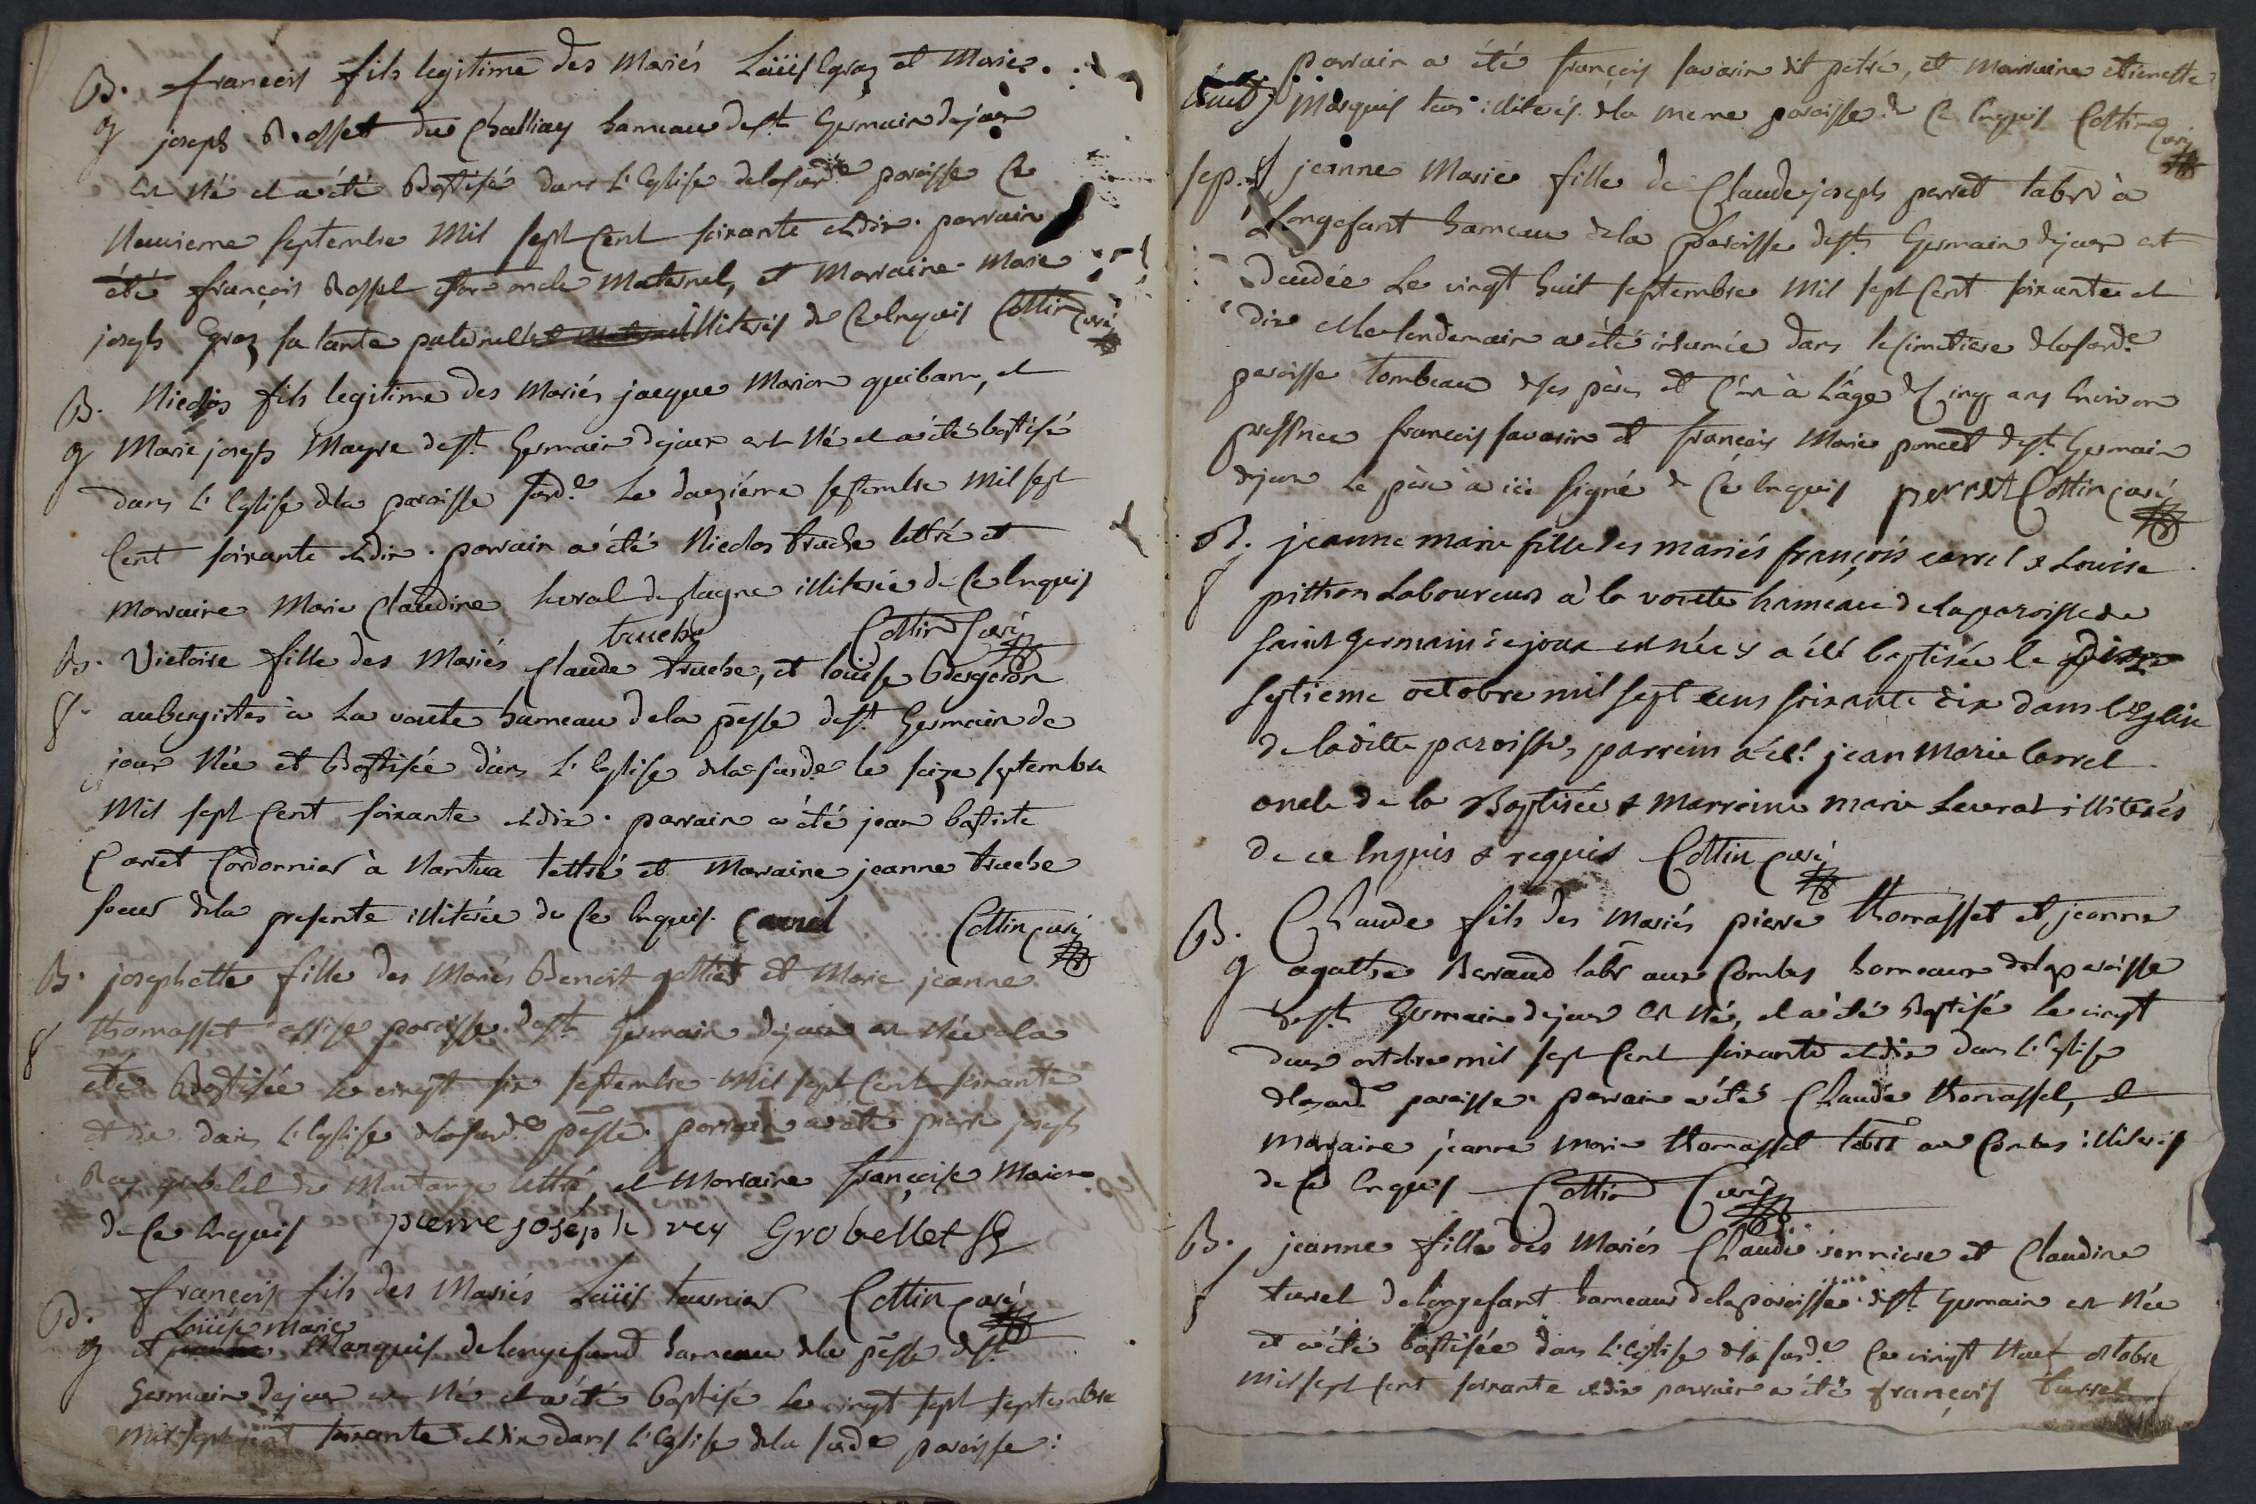 B. francois fils legitime des Mariés Loüis Gras et Marie
g joseph Rosset du Challiay hameau de St. Germain dejoux
est Né et a été Baptisé dans L'Eglise de la susde. paroisse Le
Neuvieme septembre Mil sept Cent soixante et dix. parrain
été françois Rosset son oncle Maternel, et Marraine Marie
joseph Graz sa tante paternelle illiterés de Ce Enquis Cottin Curé
B. Nicolas fils legitime des Mariés jacque Marion guibam, et
g Marie joseph Mayre de St. Germain dejoux est Né et a été baptisé
dans L'Eglise de la paroisse susde. Le douzième septembre Mil sept
Cent soixante et dix. parrain a été Nicolas truche lettré et
Marraine Marie Claudine illiterée de Ce Enquis
truche Cottin Curé
B. Victoire fille des Mariés Claude truche, et loüise Bergeron
f. aubergistes à La voute hameau dela psse de St. Germain de
joux Née et Baptisée dans L'Eglise de la susde le seize septembre
Mil sept Cent soixante et dix. parrain a été jean baptiste
Carret Cordonnier à Nantua lettré et Marraine jeanne truche
soeur de la presente illiterée de Ce Enquis. Carrel Cottin curé
B. josephette fille des Mariés Benoit gottiet et Marie jeanne
f thomasset paroisse de St. Germain dejoux est Née et a
été Baptisée Le vingt six septembre Mil sept Cent soixante
et dix dans L'Eglise de la susde. psse. parrain a été pierre joseph
Rey grobelet de Montange lettré, et Marraine françoise Marion
de Ce Enquis pierre joseph rey Grobellet
B. francois fils des Mariés Loüis tournier Cottin curé
Loüise Marie
g et Marquis de longefand hameau de la psse de St.
Germain dejoux est Né et a été baptisé Le vingt sept septembre
Mil sept cent soixante et dix dans L'Eglise de la susde paroisse:
parrain a été françois savarin dit petré, et Marraine etiennette
Marquis tous illiterés de la meme paroisse de Ce Enquis Cottin Curé
sep. f jeanne Marie fille de Claude joseph perret labr à
Longefant hameau de la paroisse de St. Germain dejoux est
decedée Le vingt huit septembre Mil sept Cent soixante et
dix et Le lendemain a été inhumée dans le simetiere de la susde.
paroisse tombeau de ses pères et à L'âge de Cinq ans Environ
presence francois savarin et françois Marie poncet de St. Germain
dejoux Le père a ici signé de Ce Enquis perret Cottin curé
B. jeanne marie fille des mariés françois carrel & Louise
f pithon Laboureur à la voute hameau de la paroisse de
saint germain dejoux est née & a été baptisée le
septieme octobre mil sept cens soixante dix dans l'Eglise
de laditte paroisse, parrein a été jean Marie Carrel
oncle de la Baptisée & Marreine marie Levrat illiterés
de ce Enquis & requis Cottin curé
B. Claude fils des Mariés pierre thomasset et jeanne
g agathe Berraud labr aux Combes hameaux de la paroisse
de St. Germain dejoux est Né, et a été Baptisé Le vingt
deux octobre mil sept Cent soixante et dix dans L'Eglise
de la susde. paroisse parrain a été Claude thomasset, et
Marraine jeanne Marie thomasset aux Combes illiterés
de Ce Enquis Cottin Curé
B. jeanne fille des Mariés Claude et Claudine
f turrel de longefant hameau de la paroisse de St. Germain est Née
et a été baptisée dans L'Eglise de la susde. Le vingt Neuf octobre
Mil sept Cent soixante et dix parrain a été françois turrel